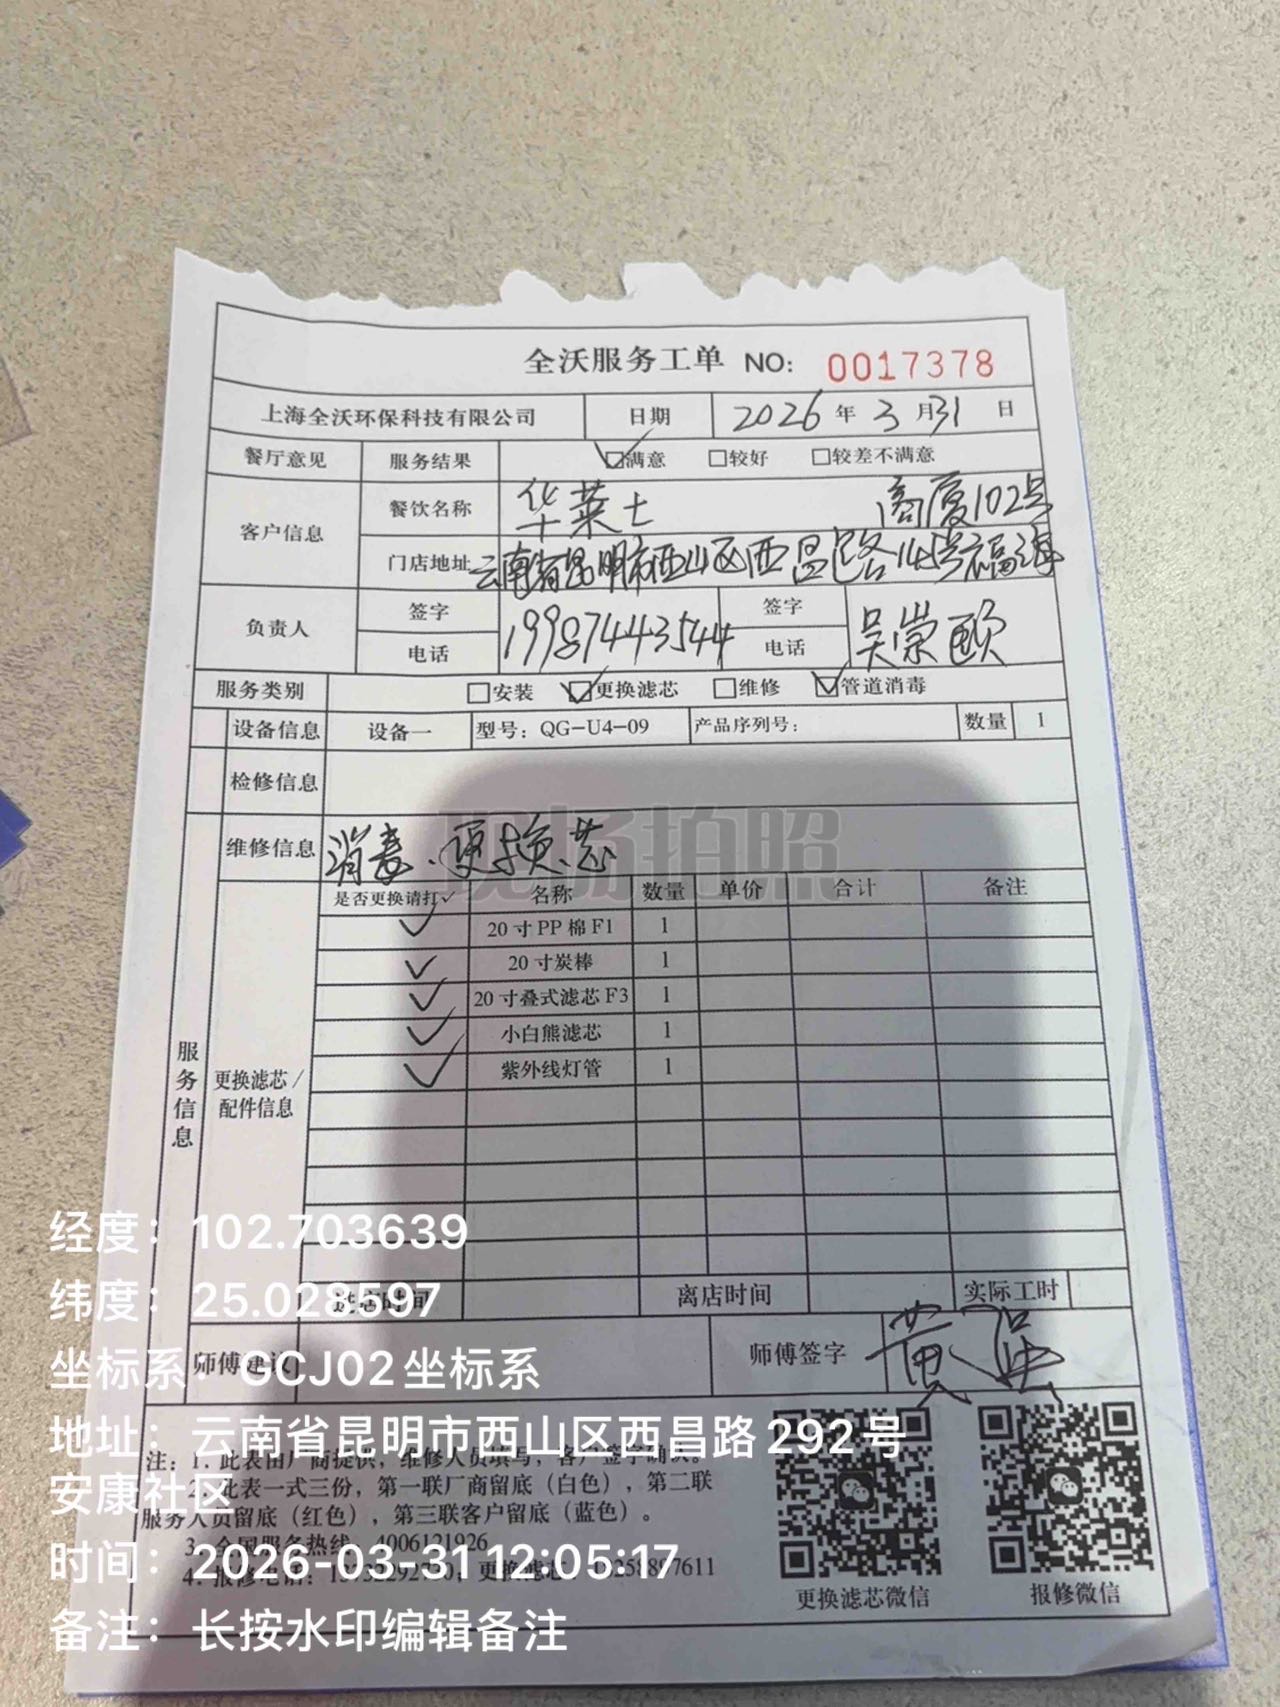 全沃服务工单 NO: 0017378
上海全沃环保科技有限公司 日期 2026 年 3 月 31 日
餐厅意见 服务结果 ☑满意 □较好 □较差不满意
客户信息 餐饮名称 华莱士 商厦102号
门店地址 云南省昆明市西山区西昌路 号福海
负责人 签字 19987443544 签字 吴崇
电话 电话
服务类别 □安装 ☑更换滤芯 □维修 ☑管道消毒
设备信息 设备一 型号：QG-U4-09 产品序列号： 数量 1
检修信息
现场拍照
维修信息 消毒、更换、芯
是否更换请打✓ 名称 数量 单价 合计 备注
✓ 20寸PP棉F1 1
✓ 20寸炭棒 1
✓ 20寸叠式滤芯F3 1
✓ 小白熊滤芯 1
✓ 紫外线灯管 1
服务信息
更换滤芯/
配件信息
进店时间 离店时间 实际工时
师傅建议 师傅签字 黄强
注：1. 此表由厂商提供，维修人员填写，客户签字确认。
2. 此表一式三份，第一联厂商留底（白色），第二联
服务人员留底（红色），第三联客户留底（蓝色）。
3. 全国服务热线：4006121926
4. 报修电话： 更换滤芯：
更换滤芯微信 报修微信
经度：102.703639
纬度：25.028597
坐标系：GCJ02坐标系
地址：云南省昆明市西山区西昌路292号
安康社区
时间：2026-03-31 12:05:17
备注：长按水印编辑备注